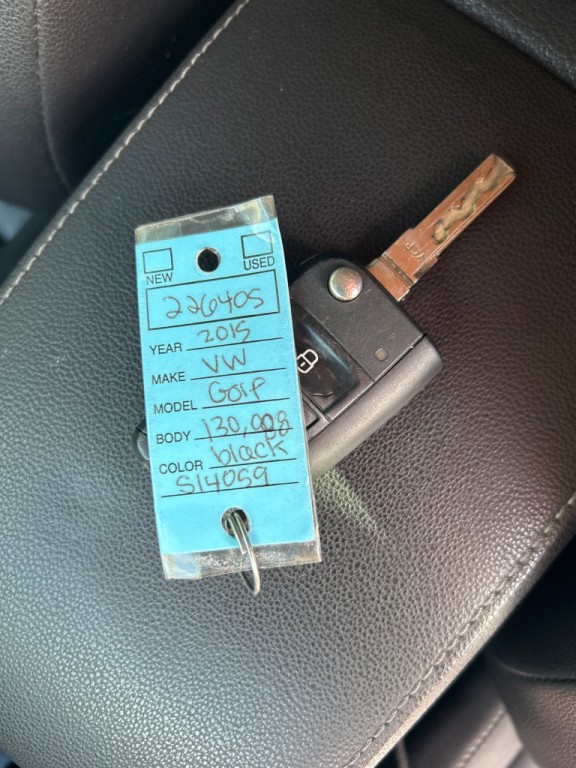 NEW USED
226405
YEAR 2015
MAKE VW
MODEL Golf
BODY 130,008
COLOR black
S14059